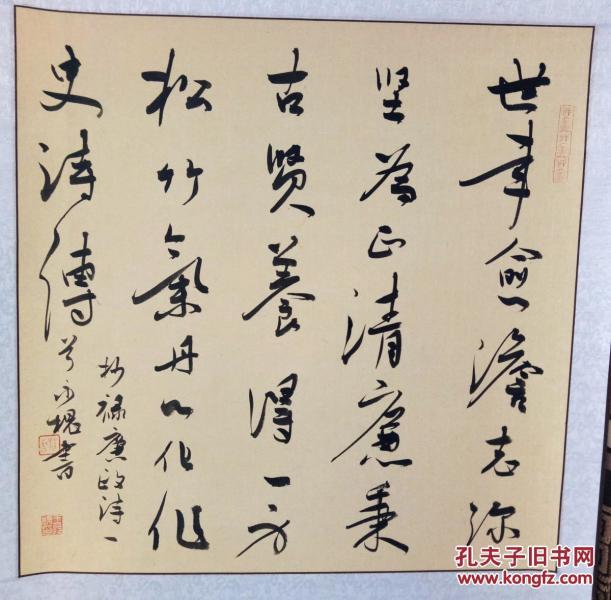 世事愈澹志弥
坚為正清廉秉
古贤養得一方
松竹氣丹心化作
史诗傳
抄禄廉政诗一
首永槐書
孔夫子旧书网
www.kongfz.com